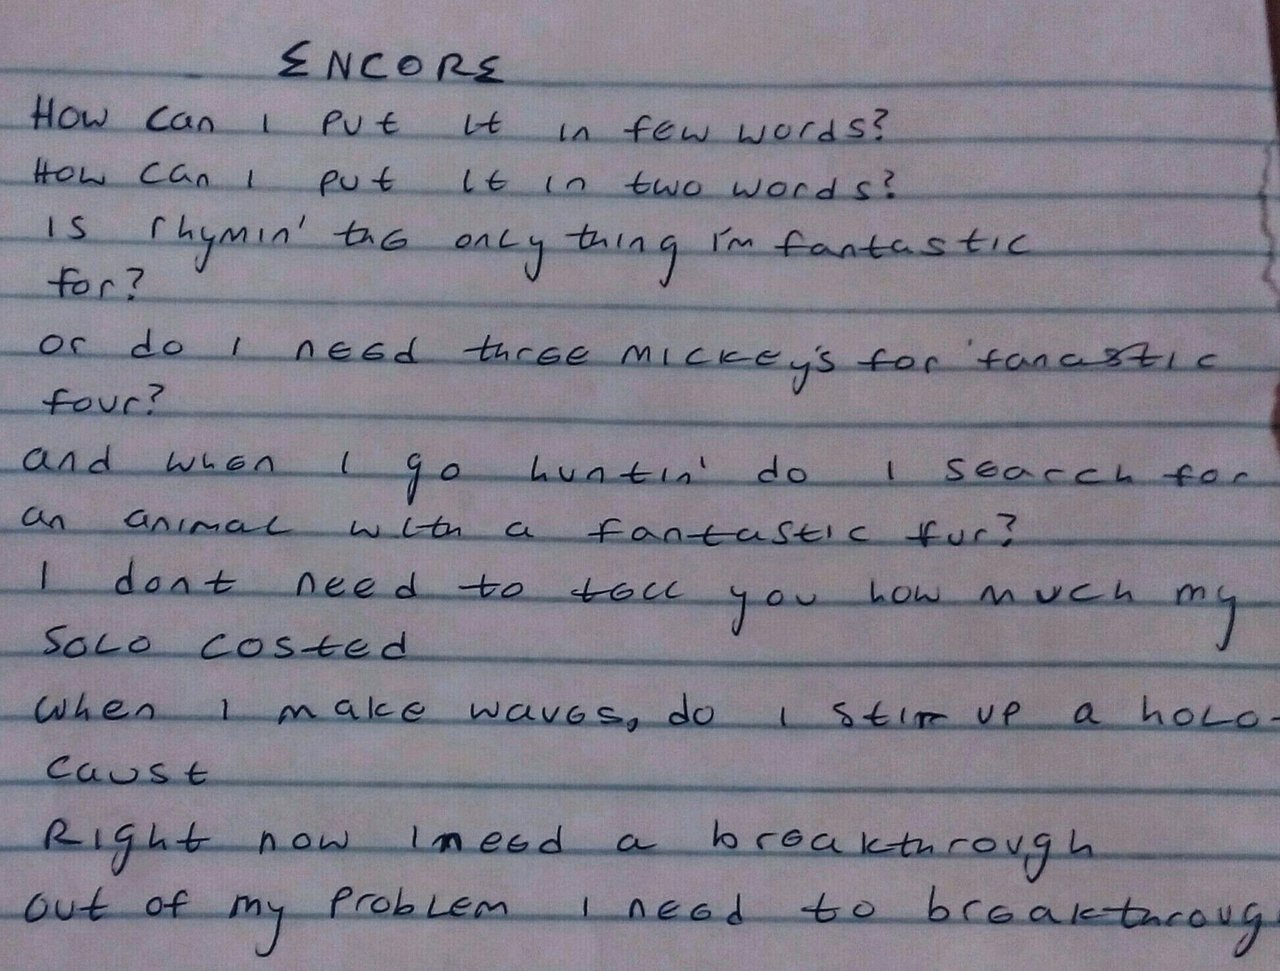 ENCORE
How can I put it in few words?
How can I put it in two words?
is rhymin' the only thing i'm fantastic
for?
or do I need three mickey's for fanastic
four?
and when I go huntin' do I search for
an animal with a fantastic fur?
I dont need to tell you how much my
solo costed
when I make waves, do I stir up a holo-
caust
Right now I need a breakthrough
out of my problem I need to breakthroug